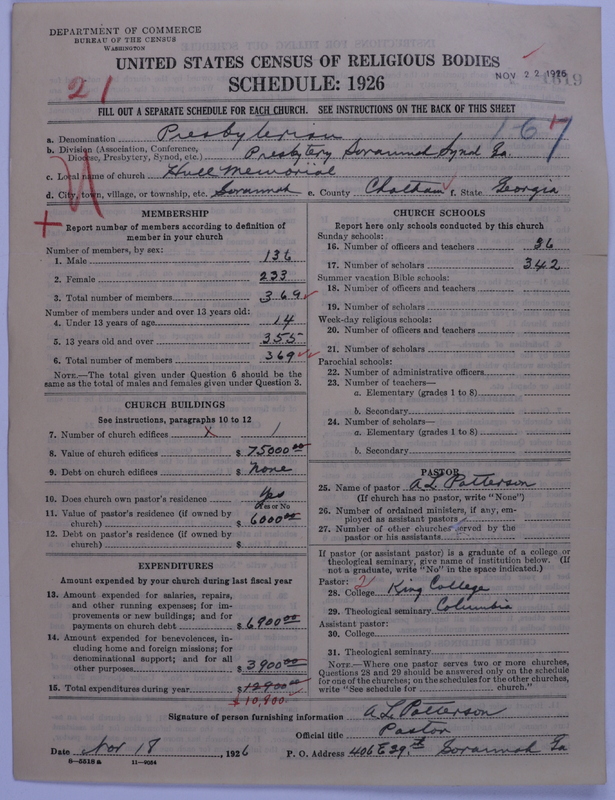 DEPARTMENT OF COMMERCE
BUREAU OF THE CENSUS
WASHINGTON
UNITED STATES CENSUS OF RELIGIOUS BODIES
NOV 22 1926
1619
21
SCHEDULE: 1926
FILL OUT A SEPARATE SCHEDULE FOR EACH CHURCH. SEE INSTRUCTIONS ON THE BACK OF THIS SHEET
167
a. Denomination Presbyterian
b. Division (Association, Conference, Diocese, Presbytery, Synod, etc.) Presbytery Savannah Synod Ga
c. Local name of church Hull Memorial
d. City, town, village, or township, etc. Savannah e. County Chatham f. State Georgia
MEMBERSHIP
Report number of members according to definition of
member in your church
Number of members, by sex:
1. Male 136
2. Female 233
3. Total number of members 369
Number of members under and over 13 years old:
4. Under 13 years of age 14
5. 13 years old and over 355
6. Total number of members 369
NOTE.—The total given under Question 6 should be the
same as the total of males and females given under Question 3.
CHURCH BUILDINGS
See instructions, paragraphs 10 to 12
7. Number of church edifices 1
8. Value of church edifices $ 75000.00
9. Debt on church edifices $ None
10. Does church own pastor's residence Yes
Yes or No
11. Value of pastor's residence (if owned by
church) $ 6000.00
12. Debt on pastor's residence (if owned by
church) $
EXPENDITURES
Amount expended by your church during last fiscal year
13. Amount expended for salaries, repairs,
and other running expenses; for im-
provements or new buildings; and for
payments on church debt $ 6900.00
14. Amount expended for benevolences, in-
cluding home and foreign missions; for
denominational support; and for all
other purposes $ 3900.00
15. Total expenditures during year $ 12900.00
$ 10,800.
CHURCH SCHOOLS
Report here only schools conducted by this church
Sunday schools:
16. Number of officers and teachers 36
17. Number of scholars 342
Summer vacation Bible schools:
18. Number of officers and teachers
19. Number of scholars
Week-day religious schools:
20. Number of officers and teachers
21. Number of scholars
Parochial schools:
22. Number of administrative officers
23. Number of teachers—
a. Elementary (grades 1 to 8)
b. Secondary
24. Number of scholars—
a. Elementary (grades 1 to 8)
b. Secondary
PASTOR
25. Name of pastor A L Patterson
(If church has no pastor, write "None")
26. Number of ordained ministers, if any, em-
ployed as assistant pastors
27. Number of other churches served by the
pastor or his assistants
If pastor (or assistant pastor) is a graduate of a college or
theological seminary, give name of institution below. (If
not a graduate, write "No" in the space indicated.)
Pastor: 2
28. College King College
29. Theological seminary Columbia
Assistant pastor:
30. College
31. Theological seminary
NOTE.—Where one pastor serves two or more churches,
Questions 28 and 29 should be answered only on the schedule
for one of the churches; on the schedules for the other churches,
write "See schedule for church."
Signature of person furnishing information A L Patterson
Official title Pastor
Date Nov 18, 1926 P. O. Address 406 E 39th Savannah Ga
8—5518 a 11—9054